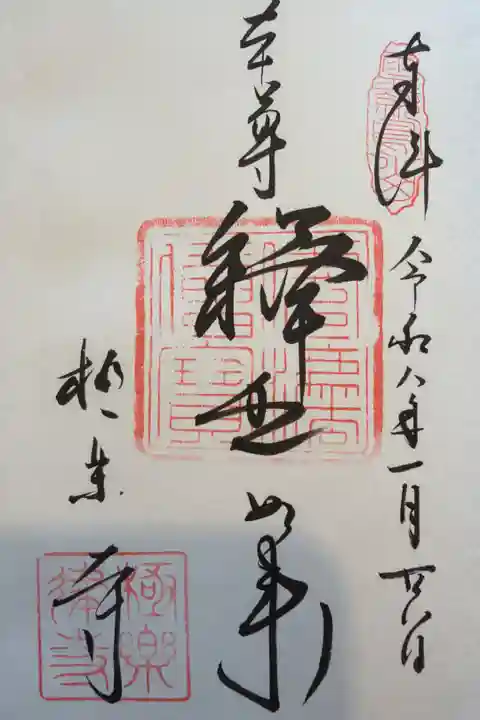 奉拝
令和八年一月廿八日
本尊
釋迦如来
極楽寺
極楽律寺